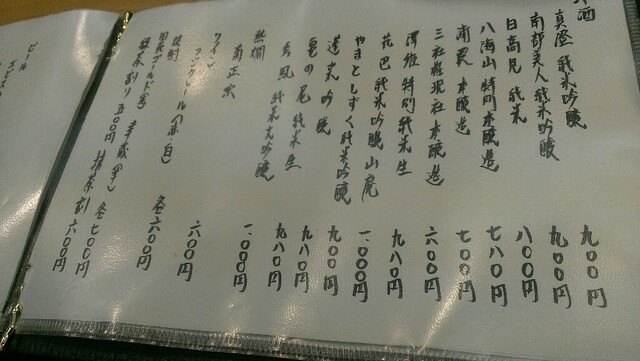 酒
真澄 純米吟醸 九〇〇円
南部美人 純米吟醸 九〇〇円
日高見 純米 八〇〇円
八海山 特別本醸造 七八〇円
本醸造 七〇〇円
本醸造 六〇〇円
澤雉 特別純米生 九八〇円
花巴 純米吟醸 山廃 一、〇〇〇円
やまとしずく 純米吟醸 九〇〇円
吟醸 九八〇円
亀の尾 純米生 九八〇円
秀鳳 純米大吟醸 一、〇〇〇円
熱燗
菊正宗 六〇〇円
ワイン
(赤・白) 各六〇〇円
焼酎
各七〇〇円
緑茶割り 五〇〇円 抹茶割 六〇〇円
ビール